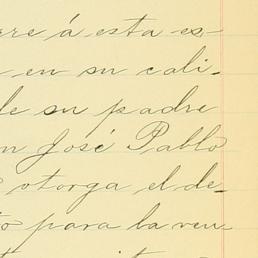 ere á esta es-
en su cali-
de su padre
n José Pablo
otorga el de-
to para la ven-